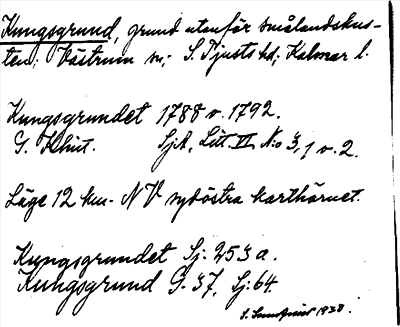 Kungsgrund, grund utanför smålandskus-
ten; Västrum sn; S. Tjusts hd; Kalmar l.
Kungsgrundet 1788 o. 1792.
G. Klint. SjA, Litt. II N:o 3, 1 o. 2.
Läge 12 km. NV sydöstra karthörnet.
Kungsgrundet Sj. 253 a.
Kungsgrund G. 37, Sj: 64.
1938.